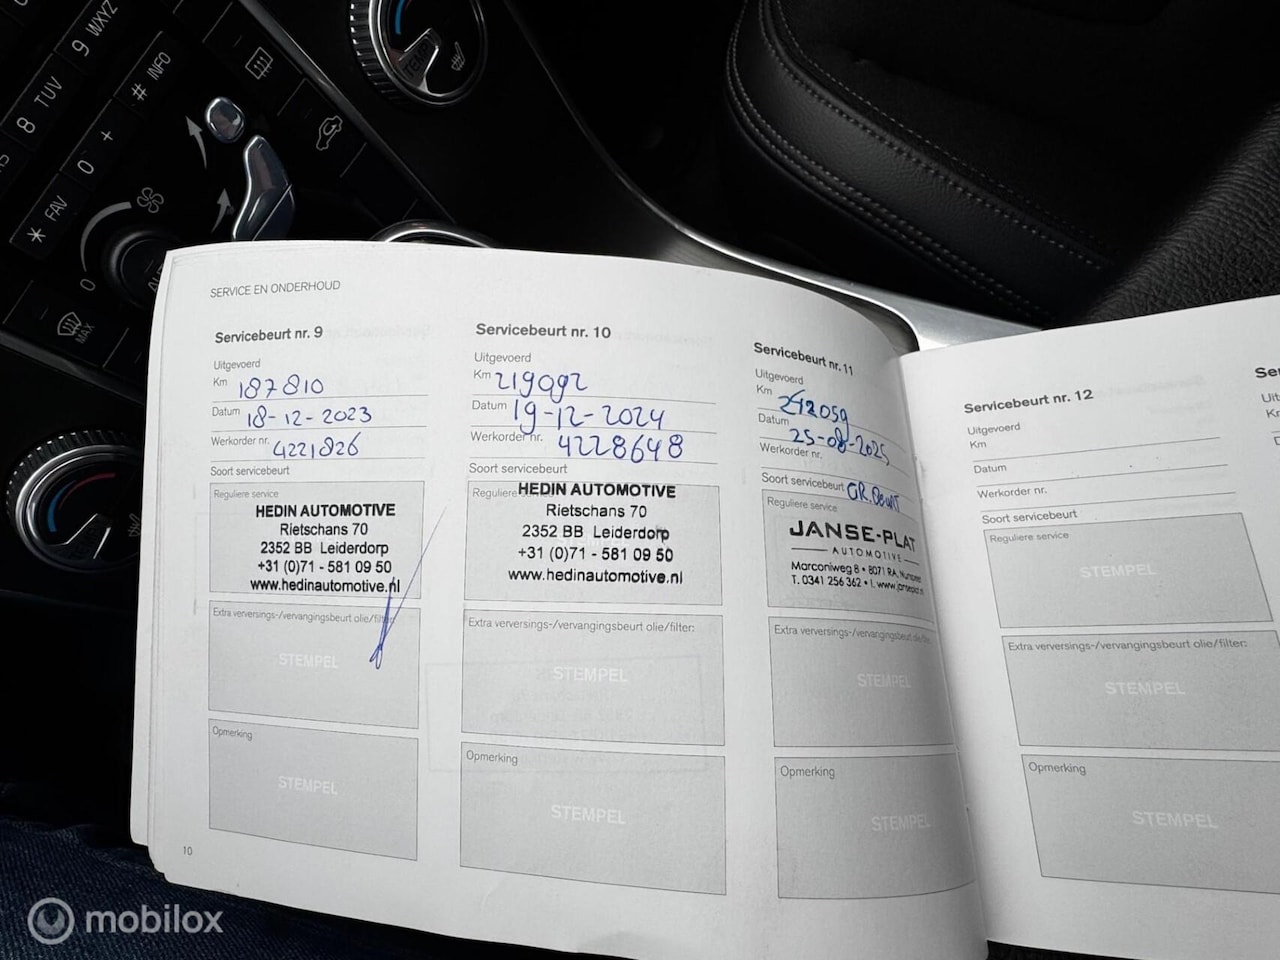 WXYZ
9
TUV
8
# INFO
0 +
* FAV
TEMP
0
MAX
SERVICE EN ONDERHOUD
Servicebeurt nr. 9
Uitgevoerd
Km 187810
Datum 18-12-2023
Werkorder nr. 4221826
Soort servicebeurt
Reguliere service
HEDIN AUTOMOTIVE
Rietschans 70
2352 BB Leiderdorp
+31 (0)71 - 581 09 50
www.hedinautomotive.nl
Extra verversings-/vervangingsbeurt olie/filter:
STEMPEL
Opmerking
STEMPEL
10
Servicebeurt nr. 10
Uitgevoerd
Km 219992
Datum 19-12-2024
Werkorder nr. 4228648
Soort servicebeurt
Reguliere service
HEDIN AUTOMOTIVE
Rietschans 70
2352 BB Leiderdorp
+31 (0)71 - 581 09 50
www.hedinautomotive.nl
Extra verversings-/vervangingsbeurt olie/filter:
STEMPEL
Opmerking
STEMPEL
Servicebeurt nr. 11
Uitgevoerd
Km 242059
Datum 25-08-2025
Werkorder nr.
Soort servicebeurt GR. Beurt
Reguliere service
JANSE-PLAT
AUTOMOTIVE
Marconiweg 8 • 8071 RA,
T. 0341 256 362 • I.
Extra verversings-/vervangingsbeurt
STEMPEL
Opmerking
STEMPEL
Servicebeurt nr. 12
Uitgevoerd
Km
Datum
Werkorder nr.
Soort servicebeurt
Reguliere service
STEMPEL
Extra verversings-/vervangingsbeurt olie/filter:
STEMPEL
Opmerking
STEMPEL
mobilox